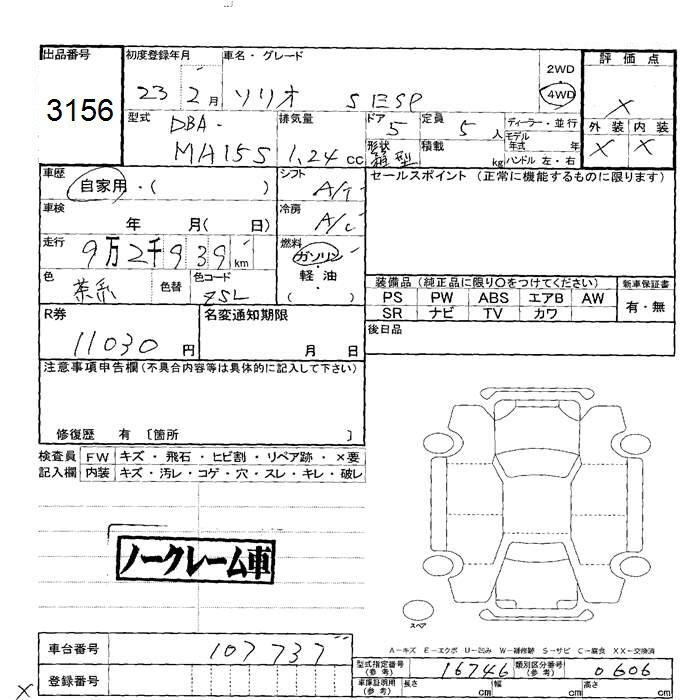 出品番号
3156
初度登録年月
23 2月
車名・グレード
ソリオ SE SP
2WD
4WD
評価点
X
外装 内装
X X
型式
DBA-
MA15S
排気量
1.24cc
ドア
5
形状
箱型
定員
5人
積載
kg
ディーラー・並行
モデル年式 年
ハンドル 左・右
車歴
自家用・( )
車検
年 月( 日)
走行
9万2千939km
色
茶系
色替
色コード
ZSL
シフト
A/T
冷房
A/C
燃料
ガソリン
軽・油
( )
セールスポイント(正常に機能するものに限ります)
装備品(純正品に限り○をつけてください)
PS PW ABS エアB AW
SR ナビ TV カワ
新車保証書
有・無
後日品
R券
11030円
名変通知期限
月 日
注意事項申告欄(不具合内容等は具体的に記入して下さい)
修復歴 有 〔箇所 〕
検査員記入欄
FW キズ・飛石・ヒビ割・リペア跡・×要
内装 キズ・汚レ・コゲ・穴・スレ・キレ・破レ
ノークレーム車
スペア
A-キズ E-エクボ U-凹み W-補修跡 S-サビ C-腐食 XX-交換済
車台番号
107737
登録番号
X
型式指定番号(参考)
16746
類別区分番号(参考)
0606
車庫証明用(参考)
長さ cm
幅 cm
高さ cm